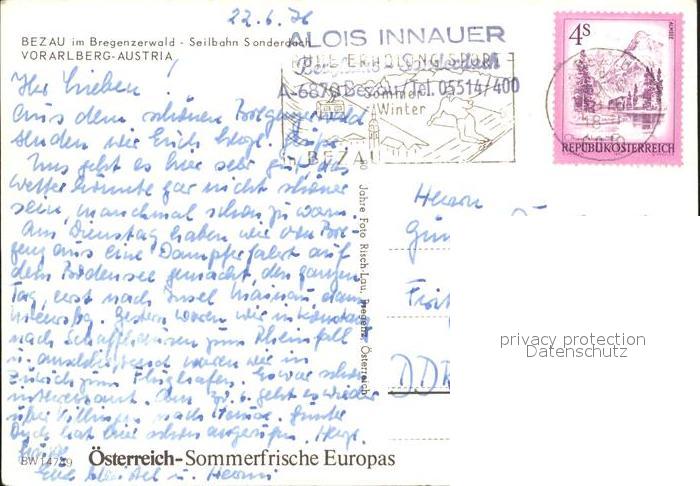 22.6.76
BEZAU im Bregenzerwald - Seilbahn Sonderdach
VORARLBERG-AUSTRIA
ALOIS INNAUER
A-6870 Bezau/Tel. 05514/400
Sommer
Winter
BEZAU
4S
REPUBLIK ÖSTERREICH
Ihr Lieben!
Aus dem schönen Bregenzerwald
senden wir Euch
Uns geht es hier sehr gut, das
Wetter könnte gar nicht schöner
sein, manchmal schon zu warm.
Am Dienstag haben wir von Bre-
genz aus eine Dampferfahrt auf
dem Bodensee gemacht, den ganzen
Tag, erst nach Insel Mainau, dann
Gestern waren wir in Konstanz
nach Schaffhausen zum Rheinfall
u. anschliessend waren wir in
Zürich zum Flughafen. Es war sehr
interessant. Am geht es wieder
über Villingen nach
Dich hat hier schon angerufen. Herzl.
Euch u.
Jahre Foto Risch-Lau, Bregenz, Österreich
Herrn
DDR
privacy protection
Datenschutz
Österreich-Sommerfrische Europas